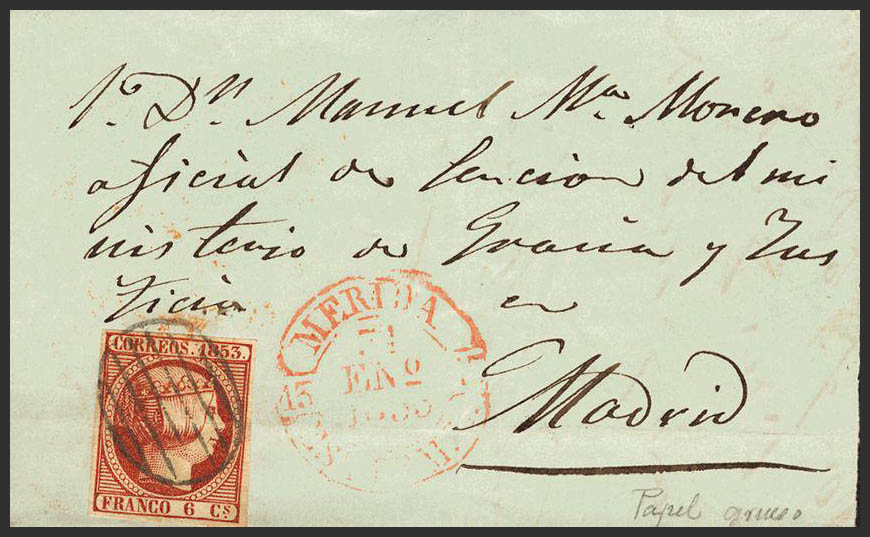 Dn. Manuel Ma. Moreno
oficial de Seccion del mi
nisterio de Gracia y Jus
ticia en
Madrid
MERIDA
ENº
CORREOS. 1853.
FRANCO 6 Cs
Papel grueso